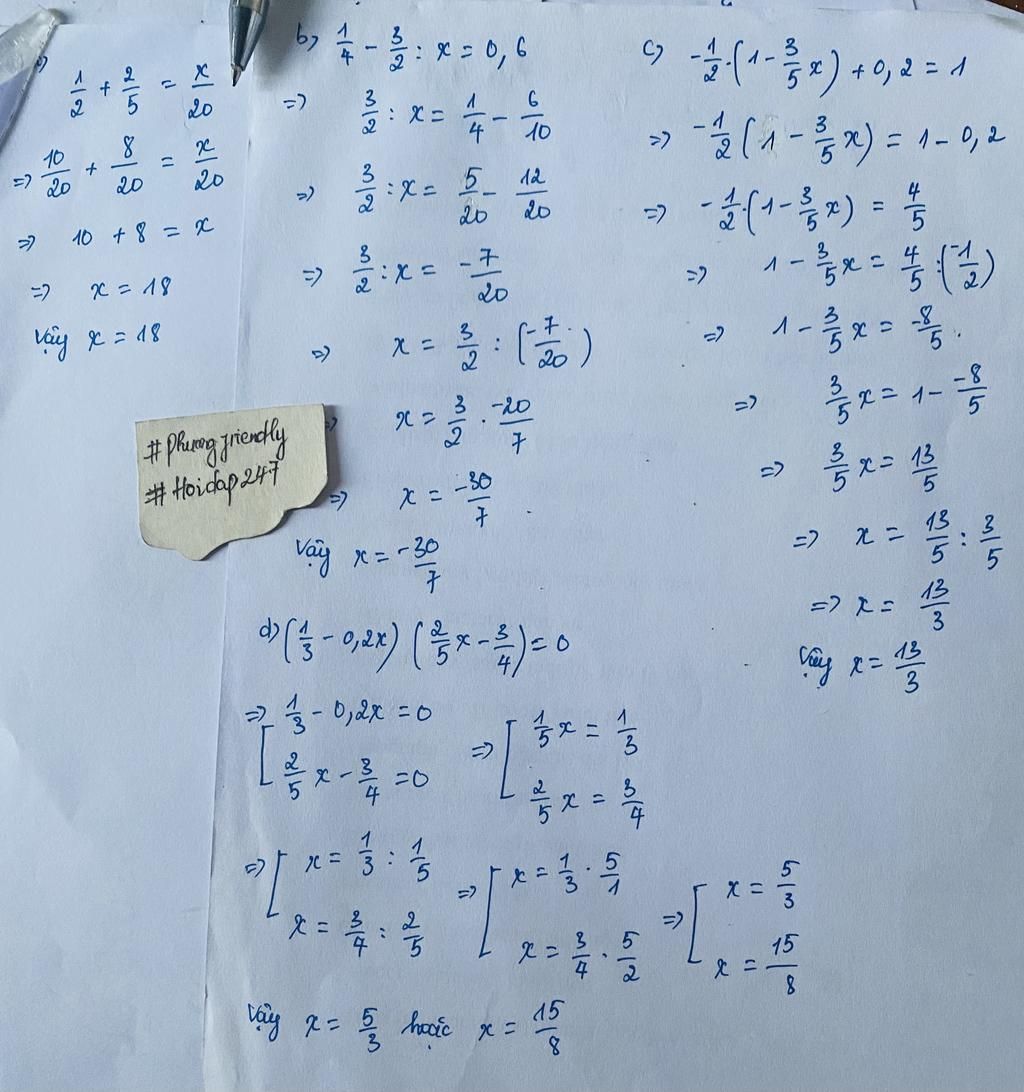 1/2 + 2/5 = x/20
=> 10/20 + 8/20 = x/20
=> 10 + 8 = x
=> x = 18
Vậy x = 18
b, 1/4 - 3/2 : x = 0,6
=> 3/2 : x = 1/4 - 6/10
=> 3/2 : x = 5/20 - 12/20
=> 3/2 : x = -7/20
=> x = 3/2 : (-7/20)
=> x = 3/2 . -20/7
=> x = -30/7
Vậy x = -30/7
c, -1/2 . (1 - 3/5 x) + 0,2 = 1
=> -1/2 (1 - 3/5 x) = 1 - 0,2
=> -1/2 . (1 - 3/5 x) = 4/5
=> 1 - 3/5 x = 4/5 : (-1/2)
=> 1 - 3/5 x = -8/5
=> 3/5 x = 1 - -8/5
=> 3/5 x = 13/5
=> x = 13/5 : 3/5
=> x = 13/3
Vậy x = 13/3
#Phuongfriendly
#Hoidap247
d, (1/3 - 0,2x) (2/5 x - 3/4) = 0
=> [ 1/3 - 0,2x = 0
2/5 x - 3/4 = 0
=> [ 1/5 x = 1/3
2/5 x = 3/4
=> [ x = 1/3 : 1/5
x = 3/4 : 2/5
=> [ x = 1/3 . 5/1
x = 3/4 . 5/2
=> [ x = 5/3
x = 15/8
Vậy x = 5/3 hoặc x = 15/8